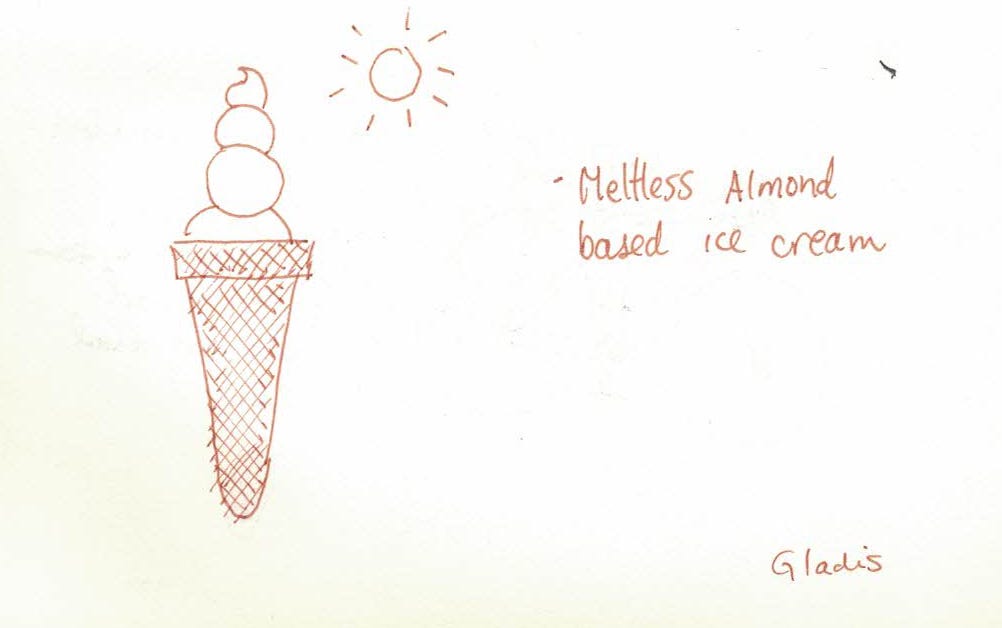 - Meltless Almond
based ice cream
Gladis